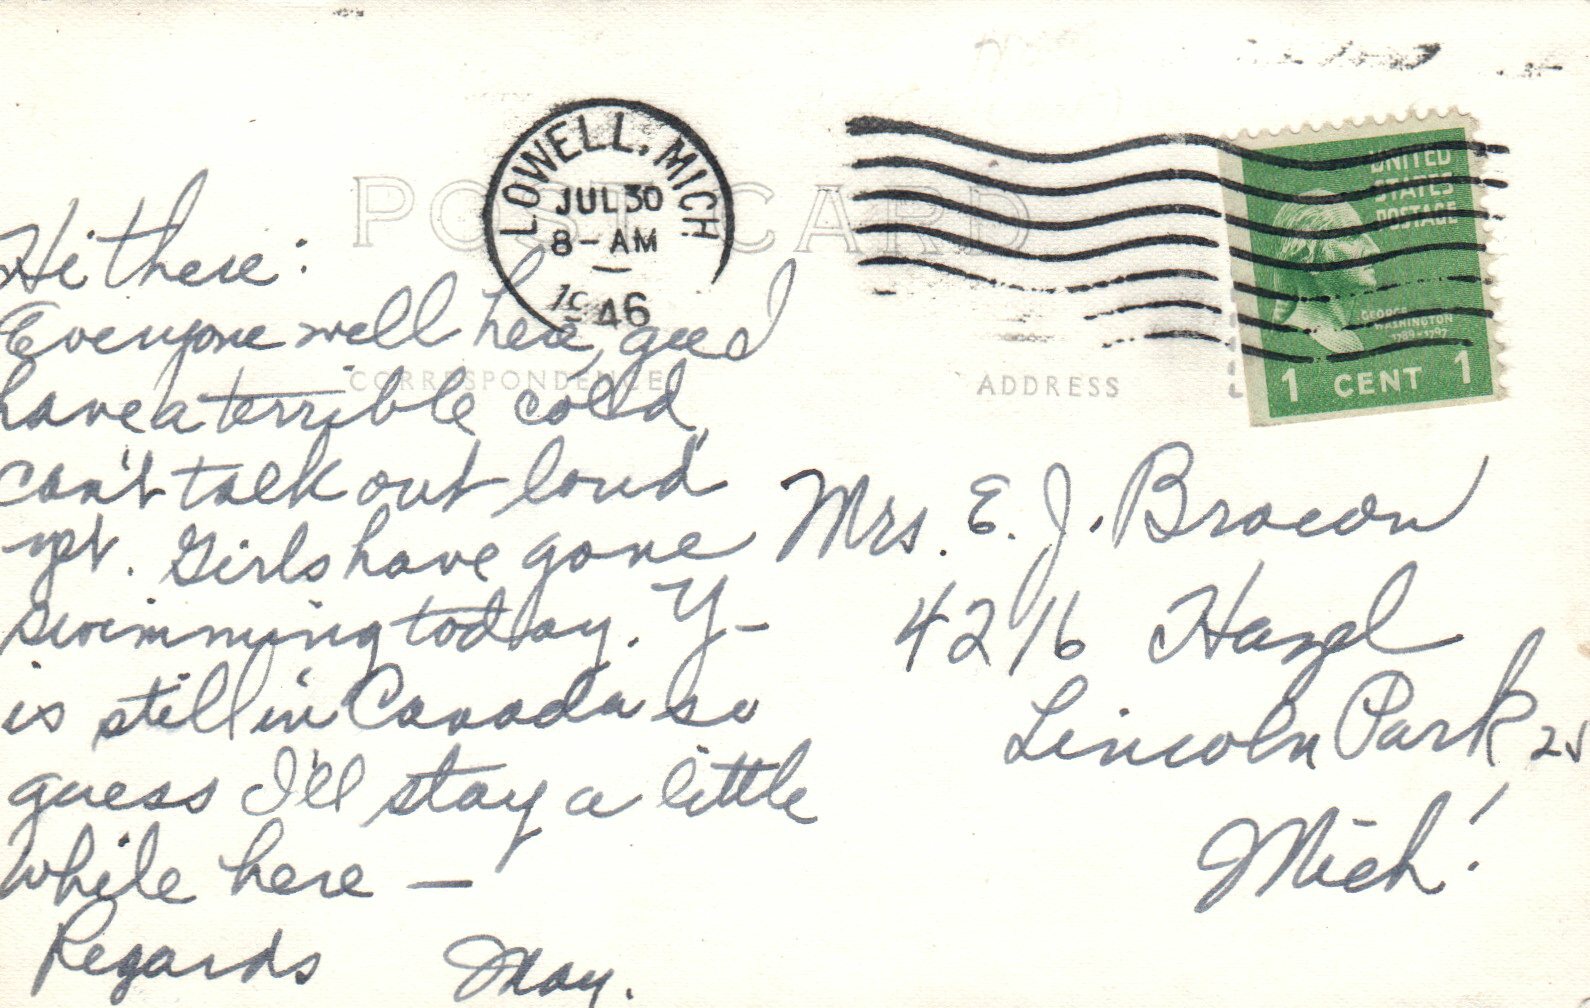 POST CARD
LOWELL, MICH.
JUL 30
8-AM
1946
UNITED
STATES
POSTAGE
GEORGE
WASHINGTON
1789-1797
1 CENT 1
CORRESPONDENCE
ADDRESS
Hi there:
Everyone well here,
I
have a terrible cold,
can't talk out loud
yet. Girls have gone
swimming today. Y-
is still in Canada so
guess I'll stay a little
while here —
Regards May.
Mrs. E. J. Brown
4216 Hazel
Lincoln Park, 25
Mich.